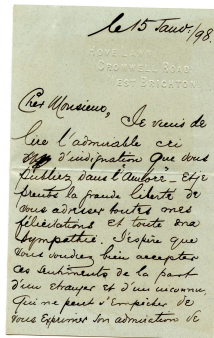 le 15 Janv./98.
HOVE LAWN
CROMWELL ROAD
WEST BRIGHTON
Cher Monsieur,
Je viens de
lire l'admirable cri
d'indignation que vous
publiez dans l'Aurore - Et je
prends la grande liberté de
vous adresser toutes mes
félicitations et toute ma
sympathie. J'espère que
vous voudrez bien accepter
ces sentiments de la part
d'un etranger et d'un inconnu
qui ne peut s'empêcher de
vous exprimer son admiration de